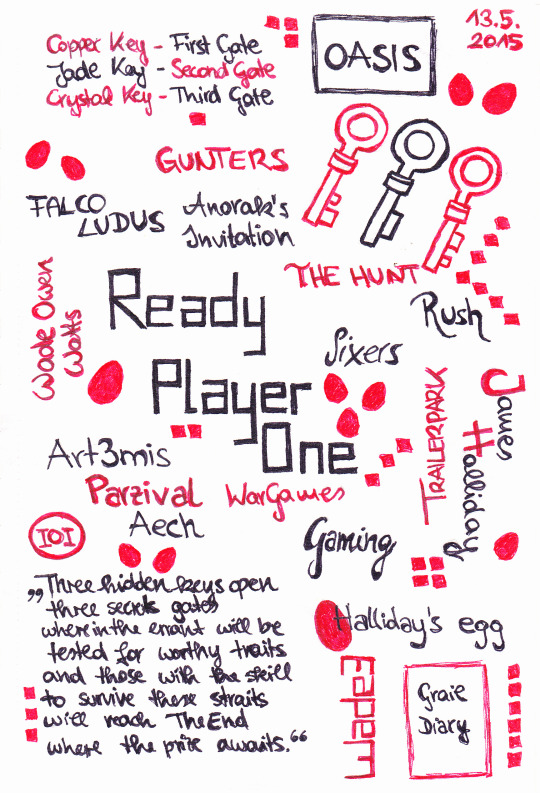 13.5.
2015
Copper Key - First Gate
Jade Key - Second Gate
Crystal Key - Third Gate
OASIS
GUNTERS
FALCO
LUDUS
Anorak's
Invitation
THE HUNT
Rush
Wade Owen
Watts
Ready
Player
One
Sixers
TRAILERPARK
James
Halliday
Art3mis
Parzival
WarGames
Aech
IOI
Gaming
„Three hidden keys open
three secret gates
wherein the errant will be
tested for worthy traits
and those with the skill
to survive these straits
will reach The End
where the prize awaits.“
Halliday's egg
Eapem
Grail
Diary